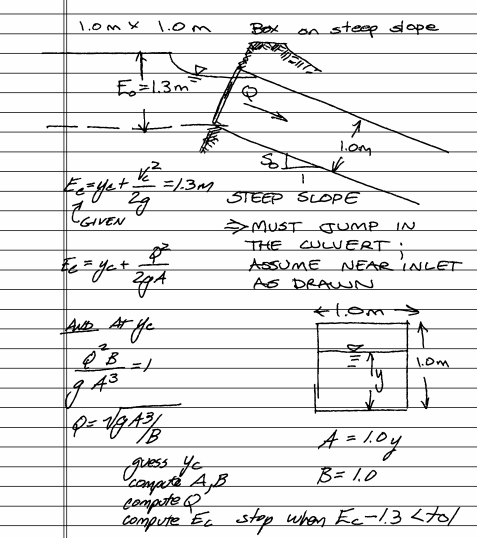 1.0m × 1.0m Box on steep slope
E₀=1.3m
Q
1.0m
S₀
1
STEEP SLOPE
Ec=yc+Vc²/2g=1.3m
GIVEN
⇒ MUST JUMP IN
THE CULVERT;
ASSUME NEAR INLET
AS DRAWN
Ec=yc+Q²/2gA
AND At yc
Q²B/gA³=1
Q=√gA³/B
1.0m
1.0m
y
A = 1.0y
B = 1.0
guess yc
compute A,B
compute Q
compute Ec stop when Ec-1.3 < tol